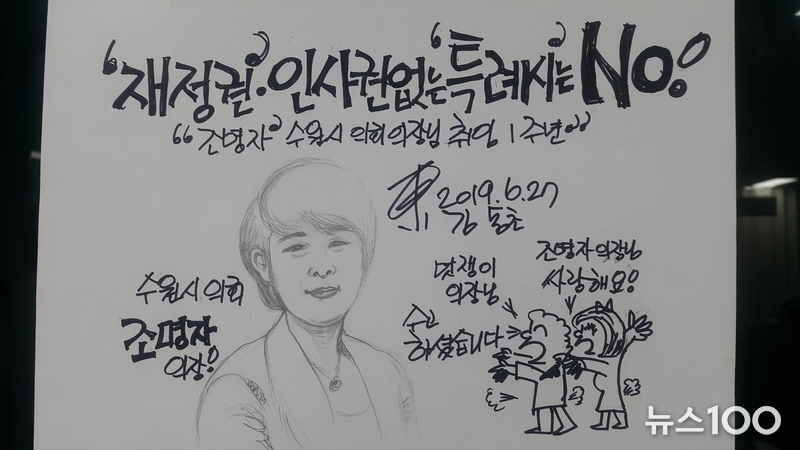 "재정권"·인사권없는 "특례시"는 No!
"조명자" 수원시 의회 의장님 취임 1주년"
2019.6.27
김 동초
수원시 의회
조명자
의장!
멋쟁이
의장님
수고
하셨습니다
조명자 의장님
사랑해요!
뉴스100